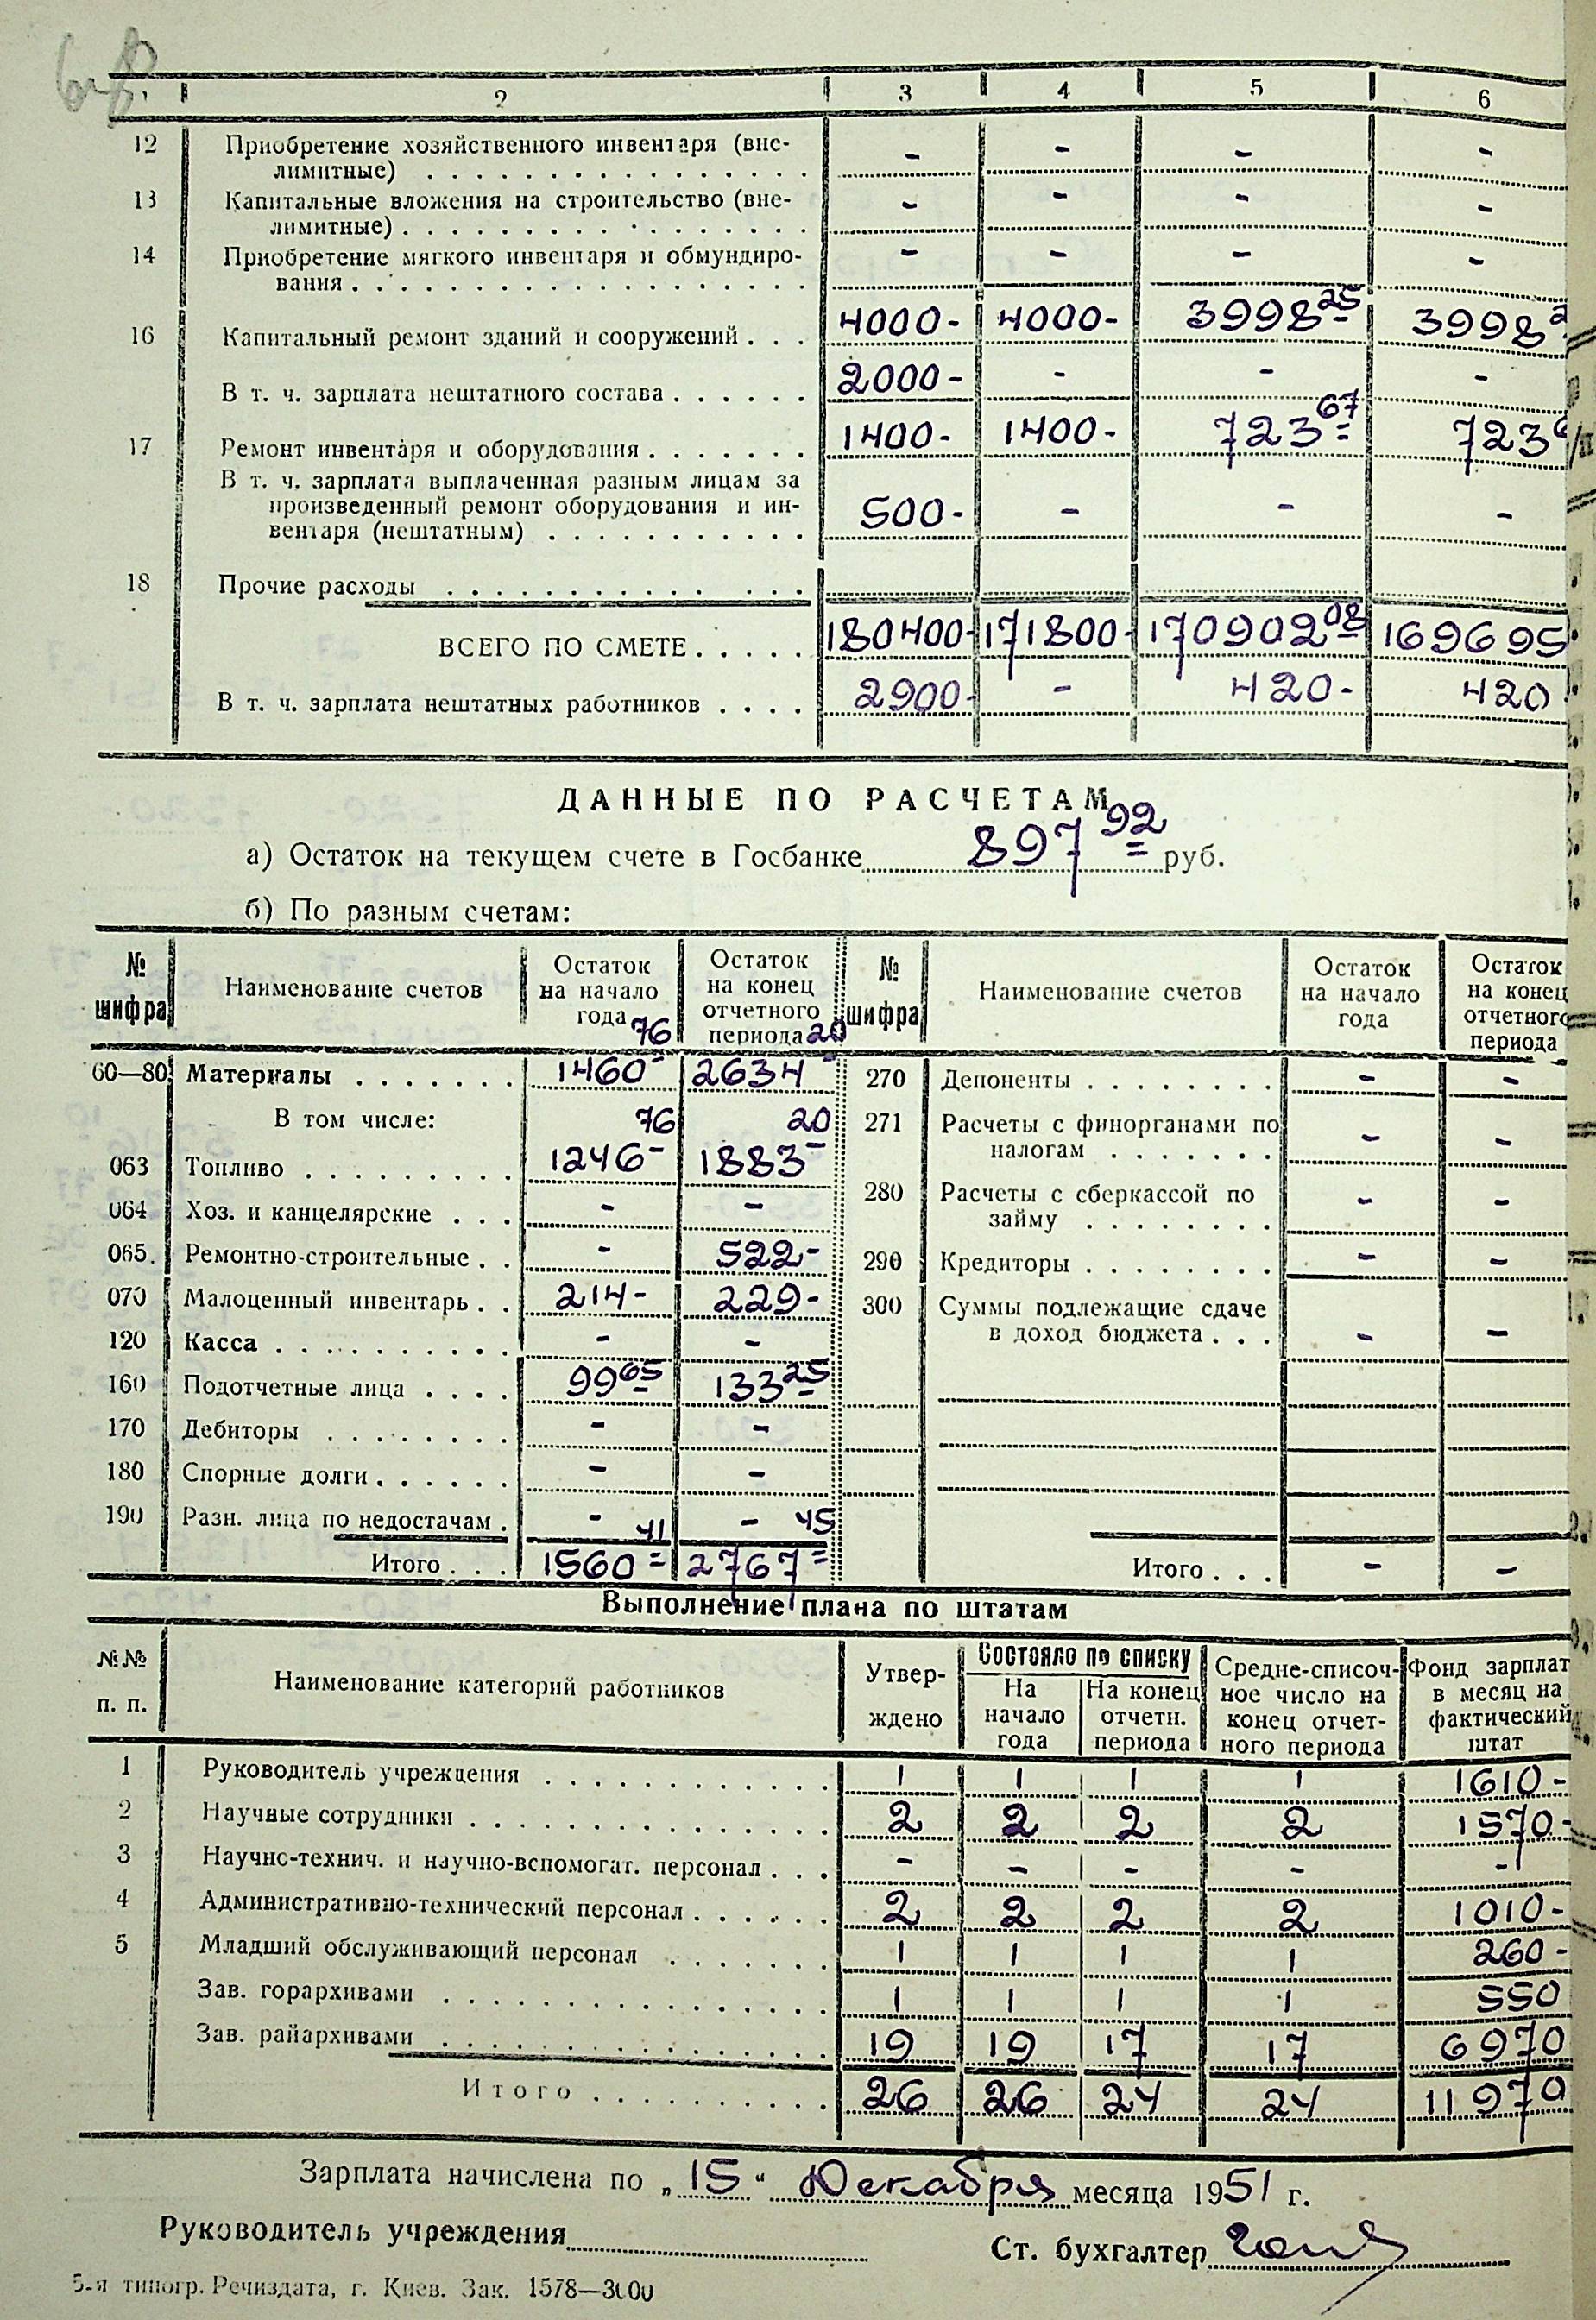 1 2 3 4 5 6
12 Приобретение хозяйственного инвентаря (вне-
лимитные) - - - -
13 Капитальные вложения на строительство (вне-
лимитные) - - - -
14 Приобретение мягкого инвентаря и обмундиро-
вания - - - -
16 Капитальный ремонт зданий и сооружений 4000- 4000- 3998 25 3998
В т. ч. зарплата нештатного состава 2000- - - -
17 Ремонт инвентаря и оборудования 1400- 1400- 723 67 723
В т. ч. зарплата выплаченная разным лицам за
произведенный ремонт оборудования и ин-
вентаря (нештатным) 500- - - -
18 Прочие расходы
ВСЕГО ПО СМЕТЕ 180400- 171800- 170902 08 169695
В т. ч. зарплата нештатных работников 2900- - 420- 420
ДАННЫЕ ПО РАСЧЕТАМ
а) Остаток на текущем счете в Госбанке 897 92 руб.
б) По разным счетам:
№ шифра Наименование счетов Остаток на начало года Остаток на конец отчетного периода № шифра Наименование счетов Остаток на начало года Остаток на конец отчетного периода
60—80 Материалы 1460 76 2634 20 270 Депоненты - -
В том числе: 271 Расчеты с финорганами по
налогам - -
063 Топливо 1246 76 1883 20
064 Хоз. и канцелярские - - 280 Расчеты с сберкассой по
займу - -
065. Ремонтно-строительные - 522- 290 Кредиторы - -
070 Малоценный инвентарь 214- 229- 300 Суммы подлежащие сдаче
в доход бюджета - -
120 Касса - -
160 Подотчетные лица 99 65 133 25
170 Дебиторы - -
180 Спорные долги - -
190 Разн. лица по недостачам - -
Итого 1560 41 2767 45 Итого - -
Выполнение плана по штатам
№№ п. п. Наименование категорий работников Утвер-ждено Состояло по списку На начало года На конец отчетн. периода Средне-списоч-ное число на конец отчет-ного периода Фонд зарплат в месяц на фактический штат
1 Руководитель учреждения 1 1 1 1 1610-
2 Научные сотрудники 2 2 2 2 1570-
3 Научно-технич. и научно-вспомогат. персонал - - - - -
4 Административно-технический персонал 2 2 2 2 1010-
5 Младший обслуживающий персонал 1 1 1 1 260-
Зав. горархивами 1 1 1 1 550
Зав. райархивами 19 19 17 17 6970
Итого 26 26 24 24 11970
Зарплата начислена по „15“ Декабря месяца 1951 г.
Руководитель учреждения
Ст. бухгалтер
5-я типогр. Речиздата, г. Киев. Зак. 1578—3000